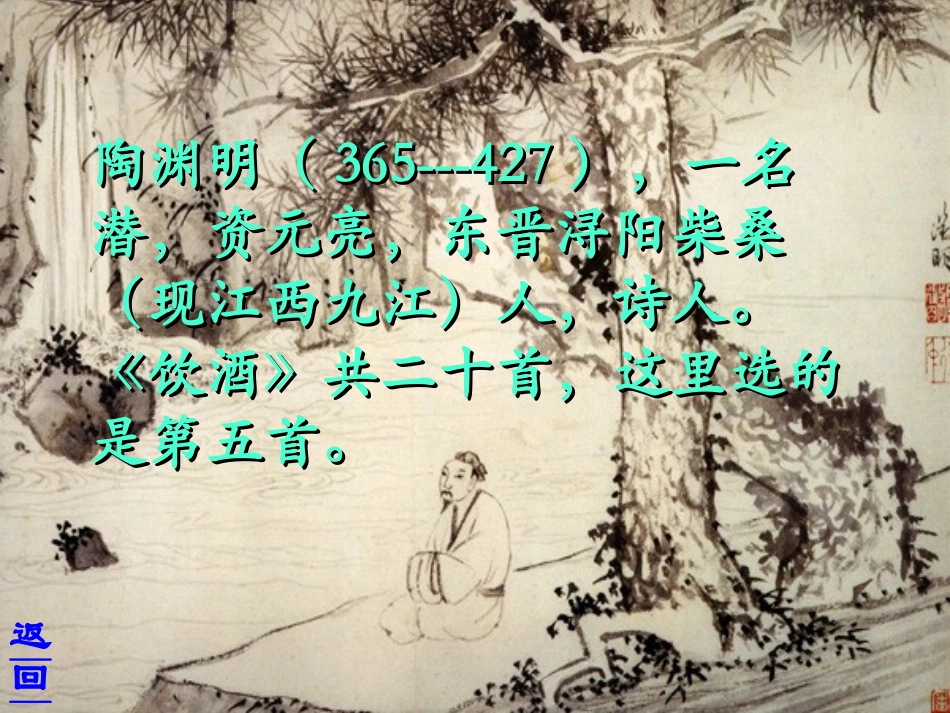 陶渊明（365---427），一名
潜，资元亮，东晋浔阳柴桑
（现江西九江）人，诗人。
《饮酒》共二十首，这里选的
是第五首。
返
回